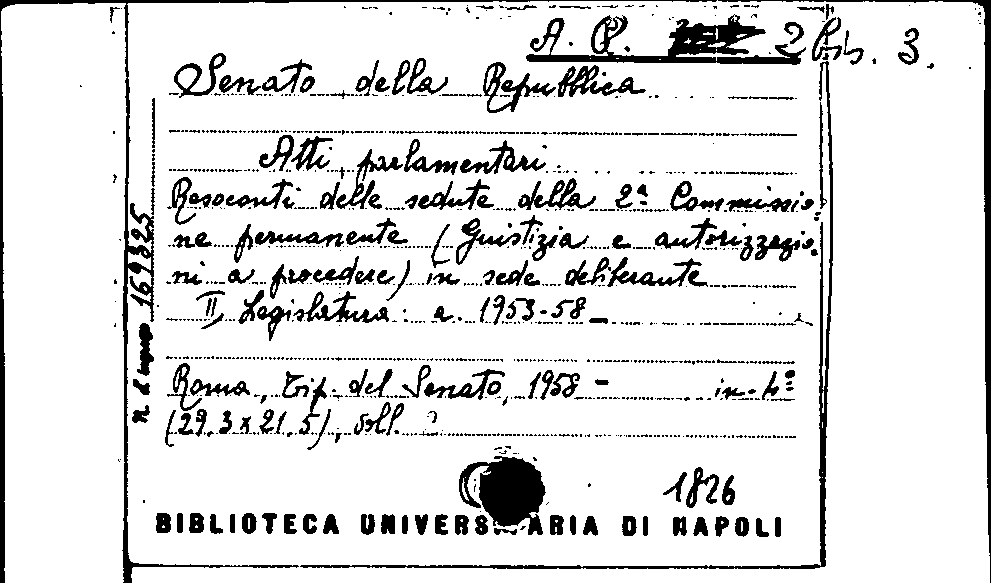 A. P. 2 Bib. 3.
Senato della Repubblica
Atti parlamentari.
Resoconti delle sedute della 2ª Commissio=
ne permanente (Giustizia e autorizzazio=
ni a procedere) in sede deliberante
II Legislatura: a. 1953-58_
Roma, Tip. del Senato, 1958 - in-4º
(29.3x21.5), voll. 2
1826
BIBLIOTECA UNIVERS ARIA DI NAPOLI
169325